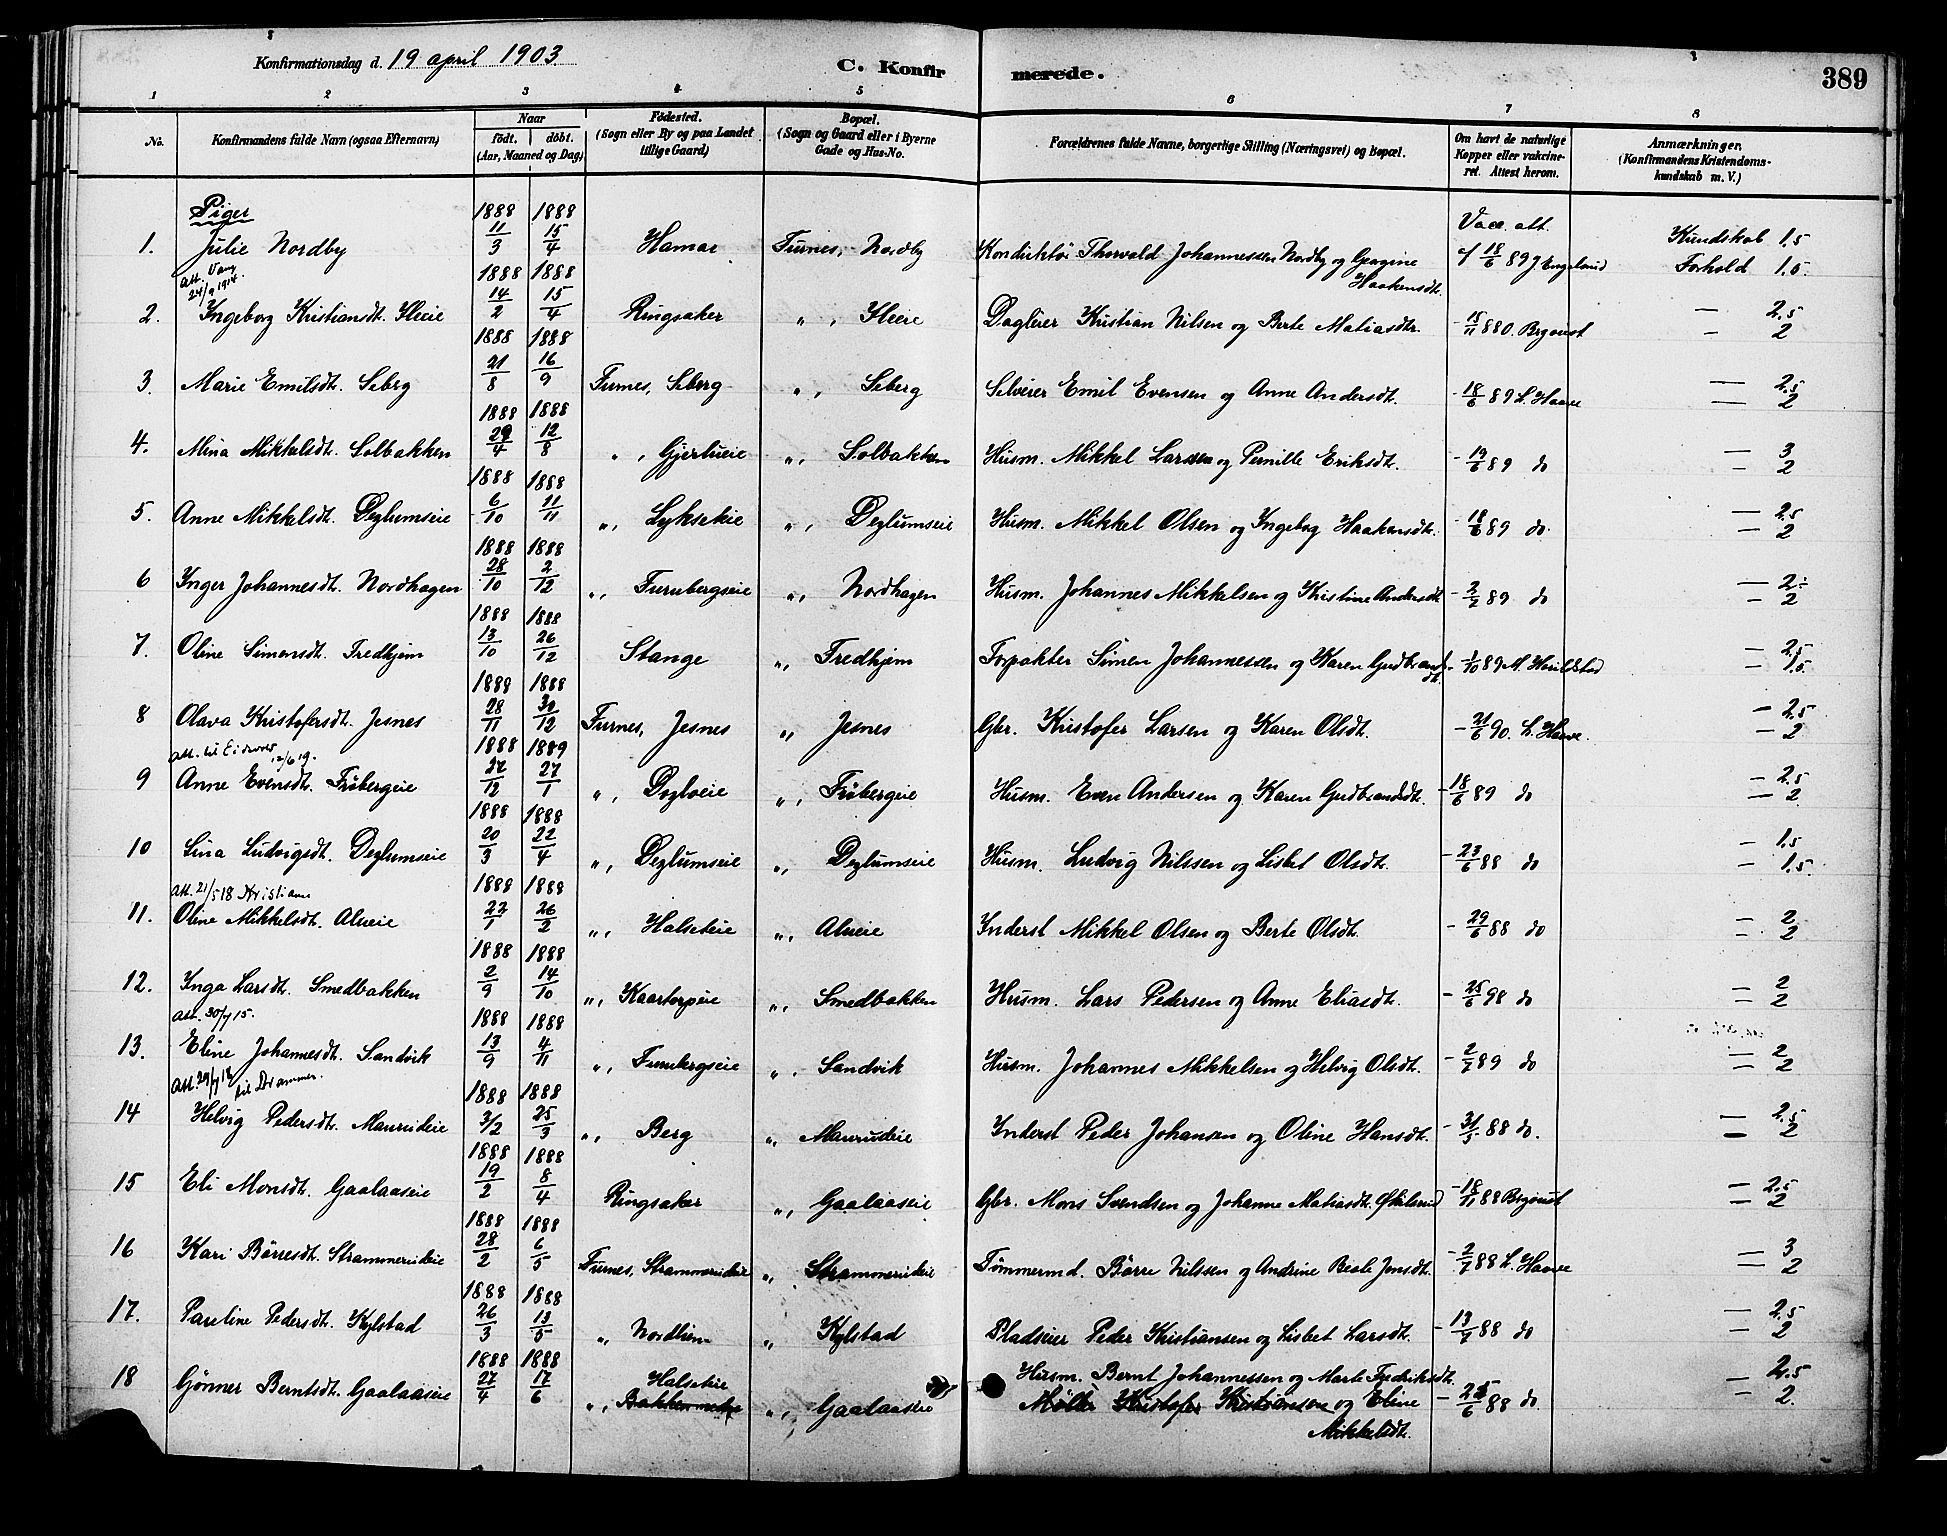 Konfirmationsdag d. 19 april 1903.
C. Konfirmerede.
389
1 2 3 4 5 6 7 8
No. Konfirmandens fulde Navn (ogsaa Efternavn) Naar født, døbt. (Aar, Maaned og Dag) Fødested. (Sogn eller By og paa Landet tillige Gaard) Bopæl. (Sogn og Gaard eller i Byerne Gade og Hus-No. Forældrenes fulde Navne, borgerlige Stilling (Næringsvei) og Bopæl. Om havt de naturlige Kopper eller vakcineret. Attest herom. Anmærkninger. (Konfirmandens Kristendomskundskab m. V.)
Piger
1. Julie Nordby 1888 11/3 1888 15/4 Hamar Furnes, Nordby Konduktør Thorvald Johannessen Nordby og Georgine Haakensdt. Vacc. att. 18/6 89 J Engelund Kundskab 1.5 Forhold 1.5.
att. Vang 24/9 1914
2. Ingeborg Kristiansdt. Sleeie 1888 14/2 1888 15/4 Ringsaker " , Sleeie Daglejer Kristian Nilsen og Berte Matiasdtr. - 15/11 880. — 2.5 - 2
3. Marie Emilsdt. Seberg 1888 21/8 1888 16/9 Furnes, Seberg " , Seberg Selveier Emil Evensen og Anne Andersdt. - 18/6 89 L. Haave — 2.5 — 2
4. Mina Mikkelsdt. Solbakken 1888 29/4 1888 12/8 " , Gjerlueie " , Solbakken Husm. Mikkel Larsen og Pernille Eriksdt. - 19/6 89 do — 3 - 2
5. Anne Mikkelsdt. Deglumseie 1888 6/10 1888 11/11 " , Lykseteie " , Deglumseie Husm. Mikkel Olsen og Ingeborg Haakensdt. - 18/6 89 do — 2.5 - 2
6 Inger Johannesdt. Nordhagen 1888 28/10 1888 2/12 " , Furubergseie " , Nordhagen Husm. Johannes Mikkelsen og Kristine Andersdt - 2/7 89 do — 2÷ - 2
7. Oline Simensdt. Fredhjem 1888 13/10 1888 26/12 Stange " , Fredhjem Forpakter Simen Johannessen og Karen Gudbrandsdt. - 1/10 89 — 2.5 - 1.5.
8 Olava Kristofersdt. Jesnes 1888 28/11 1888 30/12 Furnes, Jesnes " Jesnes Gbr. Kristofer Larsen og Karen Olsdt. - 21/6 90. L. Haave. - 2.5 - 2
att. til Eidsvold 12/6 19.
9 Anne Evensdt. Frøbergeie 1888 22/12 1889 27/1 " , Dogloeie " , Frøbergeie Husm. Even Andersen og Karen Gudbrandsdt. - 18/6 89 do - 2.5 — 2
10 Lina Ludvigsdt. Deglumseie 1888 20/3 1888 22/4 " , Deglumseie " , Deglumseie Husm. Ludvig Nilssen og Lisbet Olsdt. - 23/6 88 do - 1.5 - 1.5.
att. 21/5 18 Kristiania
11. Oline Mikkelsdt. Alueie 1888 22/1 1888 26/2 " , Halseteie " , Alueie Inderst Mikkel Olsen og Berte Olsdt. - 29/6 88 do - 2 - 2
12. Inga Larsdt. Smedbakken 1888 2/9 1888 14/10 " , Kaartorpeie " , Smedbakken Husm. Lars Pedersen og Anne Eliasdt. - 25/6 98 do - 2 - 2
att. 30/4 15.
13. Eline Johannesdt. Sandvik 1888 13/9 1888 4/11 " , Furubergseie " , Sandvik Husm. Johannes Mikkelsen og Helvig Olsdt. - 2/7 89 do — 2 - 2
att. 29/4 18 til Drammen.
14 Helvig Pedersdt. Maurudeie 1888 3/2 1888 25/3 " , Berg " Maurudeie Inderst Peder Johansen og Oline Hansdt. - 31/5 88 do. — 2.5 — 2
15 Eli Monsdt. Gaalaaseie 1888 19/2 1888 8/4 Ringsaker " , Gaalaaseie Gbr. Mons Svendsen og Johanne Matiasdt. - 18/11 88 - 2.5 — 2
16 Kari Børresdt. Strammerudeie 1888 28/2 1888 6/5 Furnes, Strammerudeie " , Strammerudeie Tømmermd. Børre Nilssen og Andrine Beate Jensdt. - 2/7 88 L. Haave — 3 - 2
17. Pauline Pedersdt. Kylstad 1888 26/3 1888 13/5 " Nordlien " , Kylstad Pladseier Peder Kristiansen og Lisbet Larsdt. - 13/7 88 do — 2.5 - 2
18 Gønner Berntsdt. Gaalaaseie 1888 27/4 1888 17/6 " , Halseteie " , Gaalaaseie Husm. Bernt Johannessen og Marte Fredriksdt. - 23/6 88 do — 2.5 - 2.
Møller Kristofer Kristiansen og Eline Mikkelsdt.